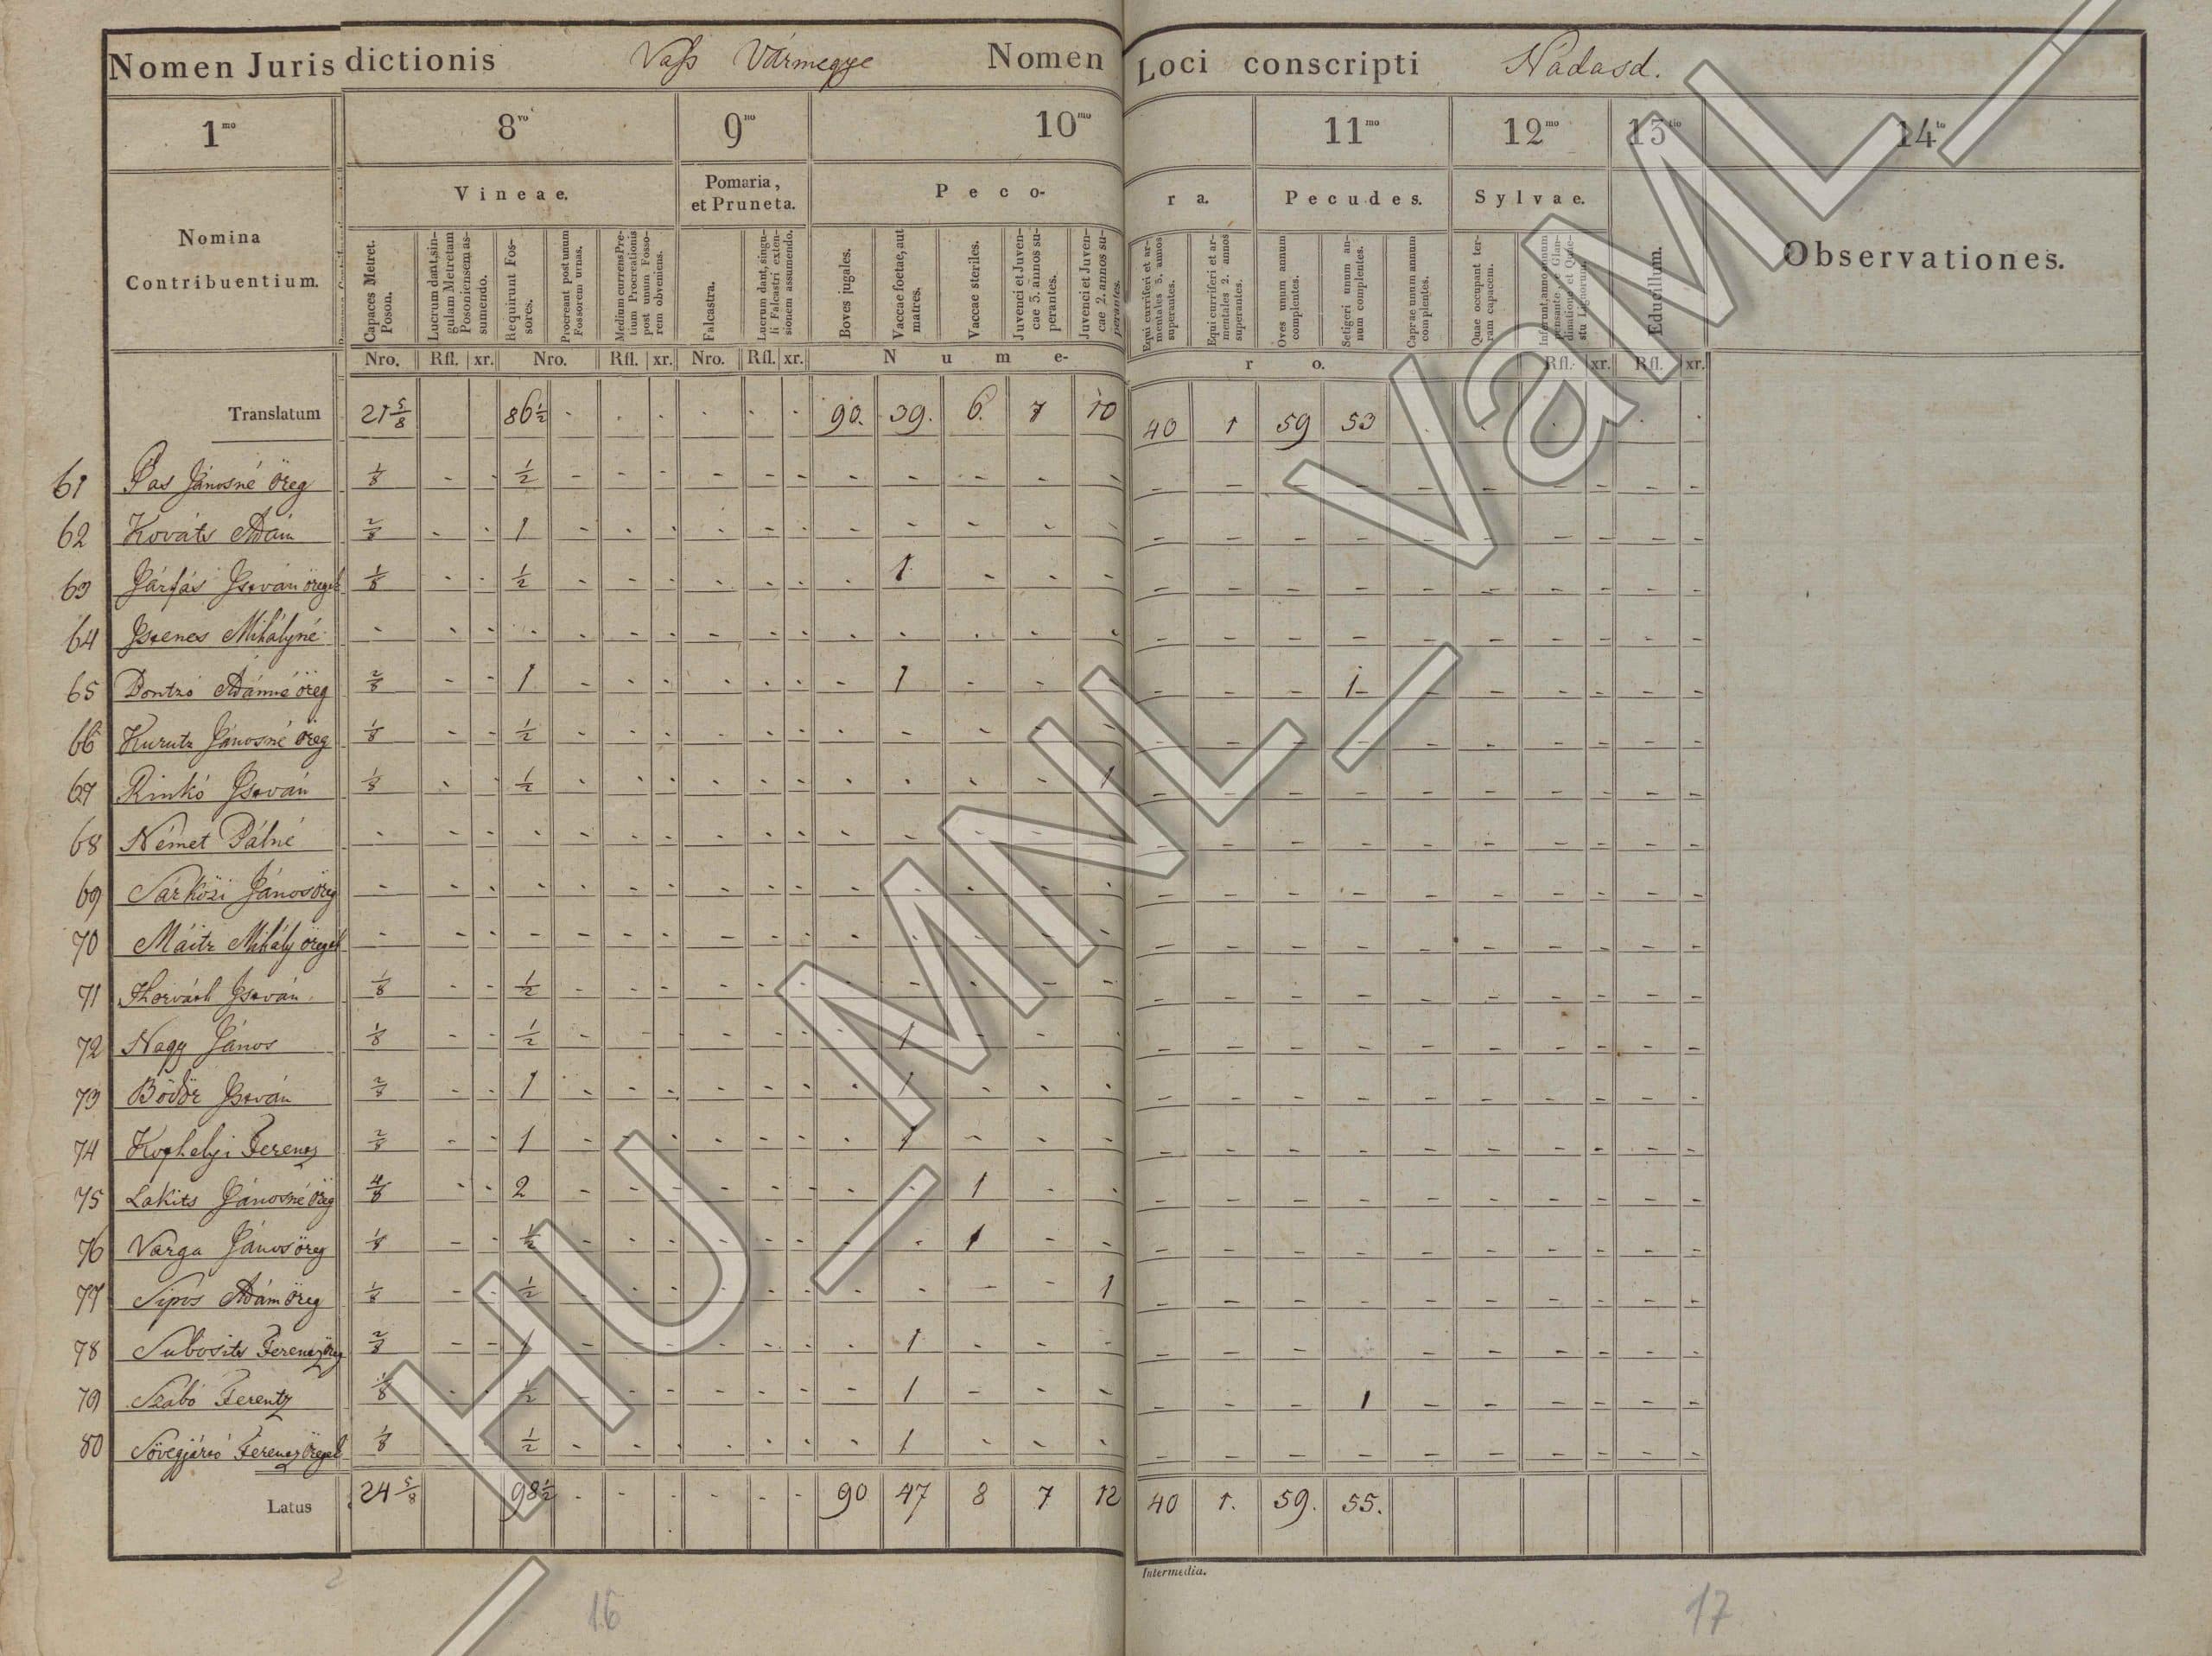 Nomen Jurisdictionis Vass Vármegye Nomen Loci conscripti Nádasd.
1mo 8vo 9no 10mo 11mo 12mo 13tio 14to
Nomina Contribuentium. Vineae. Pomaria, et Pruneta. Peco-ra. Pecudes. Sylvae. Educillum. Observationes.
Capaces Metret. Poson.
Lucrum dant, singulam Metretam Posoniensem assumendo.
Requirunt Fossores.
Procreant post unum Fossorem urnas.
Medium currens Pretium Procreationis post unum Fossorem obveniens.
Falcastra.
Lucrum dant, singuli Falcastri extensionem assumendo.
Boves jugales.
Vaccae foetae, aut matres.
Vaccae steriles.
Juvenci et Juvencae 3. annos superantes.
Juvenci et Juvencae 2. annos superantes.
Equi curriferi et armentales 3. annos superantes.
Equi curriferi et armentales 2. annos superantes.
Oves unum annum complentes.
Setigeri unum annum complentes.
Caprae unum annum complentes.
Quae occupant terram capacem.
Nro. Rfl. xr. Nro. Rfl. xr. Nro. Rfl. xr. Nume-ro. Rfl. xr. Rfl. xr.
Translatum 21 5/8 86 1/2 - - - - - - 90. 39. 6. 7 10 40 1 59 53
61 Pas Jánosné Öreg 1/8 - - 1/2 - - - - - - - - - - - - - - - - - - - - -
62 Kováts Adám 2/8 - - 1 - - - - - - - - - - - - - - - - - - - - -
63 Járfás István öregeb 1/8 - - 1/2 - - - - - - - 1 - - - - - - - - - - - - -
64 Istenes Mihályné - - - - - - - - - - - - - - - - - - - - - - - - -
65 Dontzó Adámné öreg 2/8 - - 1 - - - - - - - 1 - - - - - - 1 - - - - - -
66 Kurutz Jánosné öreg 1/8 - - 1/2 - - - - - - - - - - - - - - - - - - - - -
67 Rinkó István 1/8 - - 1/2 - - - - - - - - - - 1 - - - - - - - - - -
68 Német Pálné - - - - - - - - - - - - - - - - - - - - - - - - -
69 Sárközi János öreg - - - - - - - - - - - - - - - - - - - - - - - - -
70 Máitz Mihály öregeb - - - - - - - - - - - - - - - - - - - - - - - - -
71 Horváth István 1/8 - - 1/2 - - - - - - - - - - - - - - - - - - - - -
72 Nagy János 1/8 - - 1/2 - - - - - - - 1 - - - - - - - - - - - - -
73 Bödör István 2/8 - - 1 - - - - - - - 1 - - - - - - - - - - - - -
74 Ferencz 2/8 - - 1 - - - - - - - 1 - - - - - - - - - - - - -
75 Lakits Jánosné Öreg 4/8 - - 2 - - - - - - - - 1 - - - - - - - - - - - -
76 Varga János öreg 1/8 - - 1/2 - - - - - - - - 1 - - - - - - - - - - - -
77 Sipos Adám öreg 1/8 - - 1/2 - - - - - - - - - - 1 - - - - - - - - - -
78 Subosits Ferencz öreg 2/8 - - 1 - - - - - - - 1 - - - - - - - - - - - - -
79 Szabó Ferentz 1/8 - - 1/2 - - - - - - - 1 - - - - - - 1 - - - - - -
80 Sövegjártó Ferencz Öregeb 1/8 - - 1/2 - - - - - - - 1 - - - - - - - - - - - - -
Latus 24 5/8 98 1/2 - - - - - - 90 47 8 7 12 40 1. 59. 55.
Intermedia.
16 17
HU_MNL_VaML_